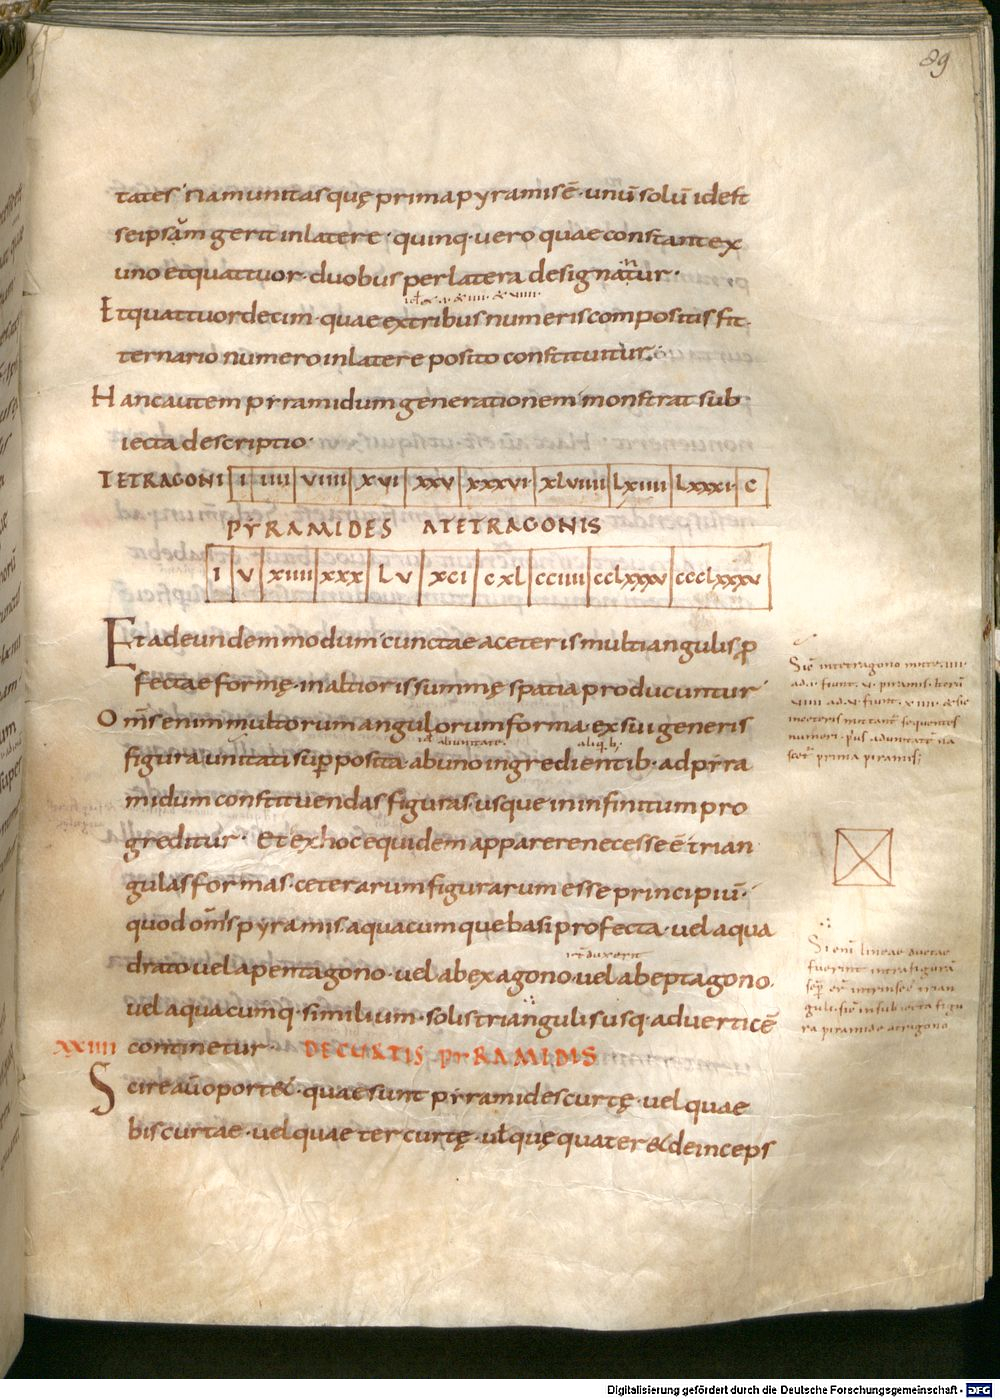 89
tates· nam unitas quę prima pyramis ē· unū solū id est
se ipsam gerit in latere· quinq· vero quae constant ex
uno et quattuor· duobus per latera designatur·
Et quattuordecim· quae ex tribus numeris compositis fit·
ternario numero in latere posito constituitur·
Hanc autem pyramidum generationem monstrat sub
iecta descriptio·
TETRAGONI I IIII VIIII XVI XXV XXXVI XLVIIII LXIIII LXXXI C
PYRAMIDES A TETRAGONIS
I V XIIII XXX LV XCI CXL CCIIII CCLXXXV CCCLXXXV
Et ad eundem modum cunctae a ceteris multiangulis ꝓ
fectae formę· in altioris summę spatia producuntur
Om̄s enim multorum angulorum forma· ex sui generis
id· ab unitate· aliq·b;
figura unitati sup̄posita· ab uno ingredientib· ad pyra
midum constituendas figuras· usque in infinitum pro
greditur· Et ex hoc equidem apparere necesse ē trian
gulas formas· ceterarum figurarum esse principiū·
quod om̄s pyramis· a quacumque basi profecta· vel a qua
drato vel a pentagono· vel ab exagono· vel ab eptagono·
vel a quacumq· similium· solis triangulis usq· ad verticē
continetur·
XXIIII DE CURTIS PYRAMIDIS
Scire aūo oport&· quae sunt pyramides curtę· vel quae
bis curtae· vel quae ter curtę· vł quę quater & deinceps
Sic in tetragono
ad·I· fiunt· V· piramis· iterū
VIIII ad·V· fiunt· XIIII·
sequentes
numeri·
prima piramis;
Si enī lineae ductae
fuerint intra figurā
sēp
guli· sic in subiecta figu
ra piramide
Digitalisierung gefördert durch die Deutsche Forschungsgemeinschaft - DFG